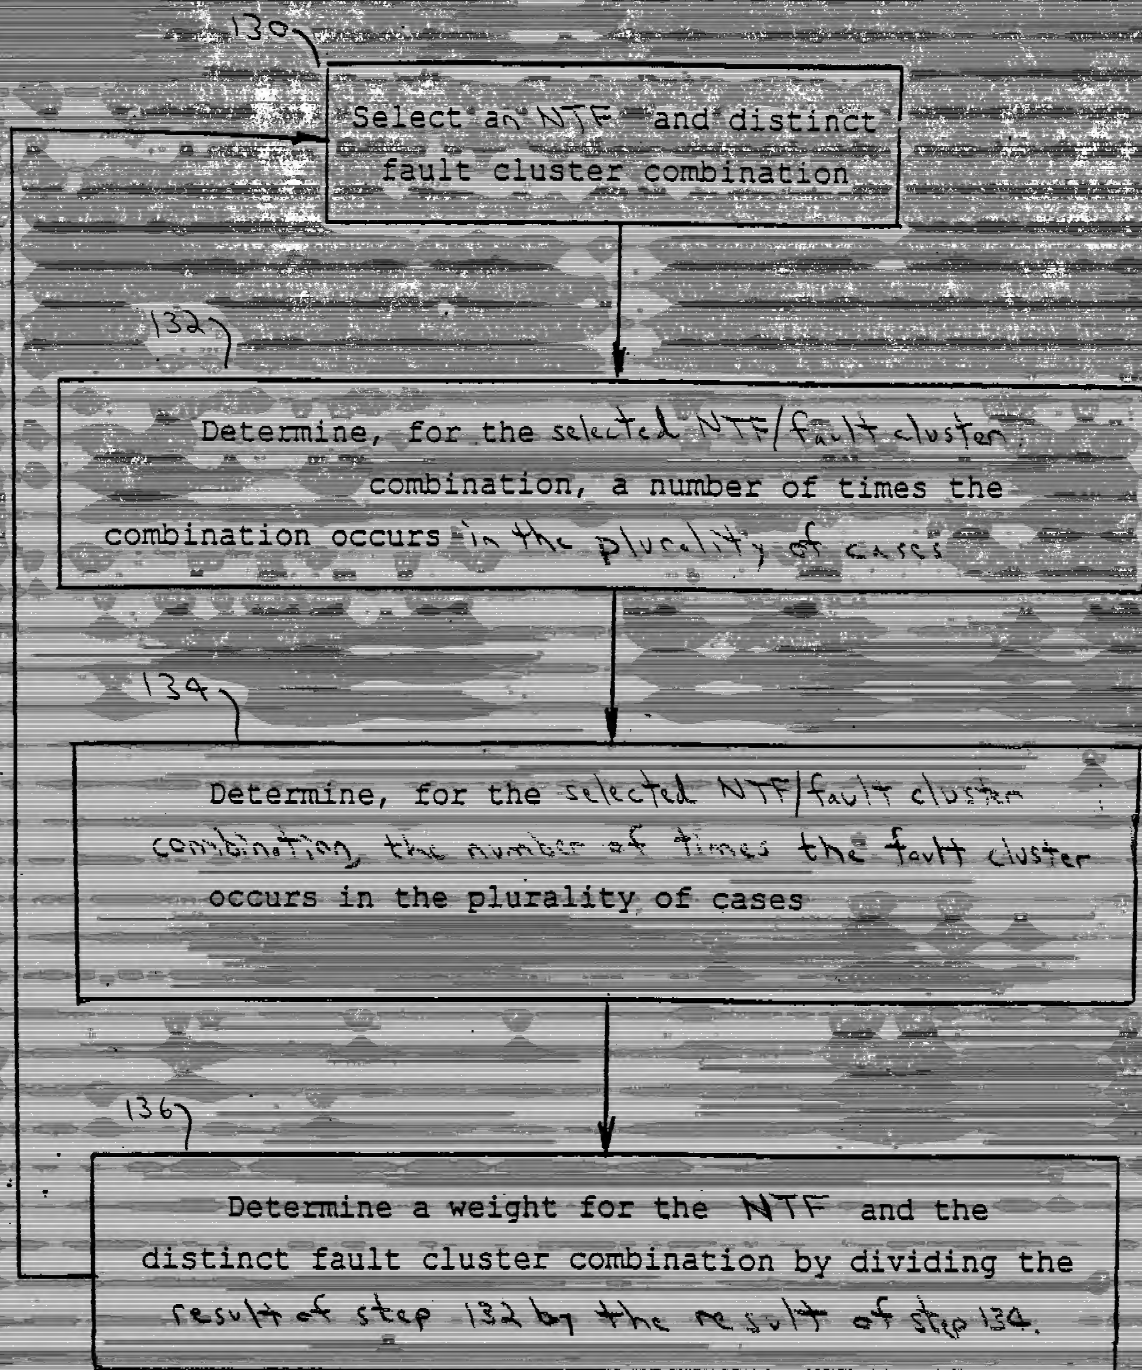 130
Select an NTF and distinct
fault cluster combination
132
Determine, for the selected NTF/fault cluster
combination, a number of times the
combination occurs in the plurality of cases
134
Determine, for the selected NTF/fault cluster
combination, the number of times the fault cluster
occurs in the plurality of cases
136
Determine a weight for the NTF and the
distinct fault cluster combination by dividing the
result of step 132 by the result of step 134.